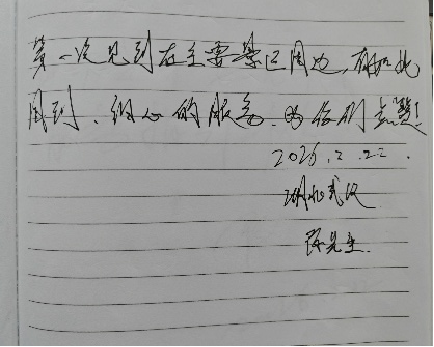 第一次见到在主要景区周边,有如此
周到、细心的服务。为你们点赞!
2026.2.22.
湖北武汉
陈先生.